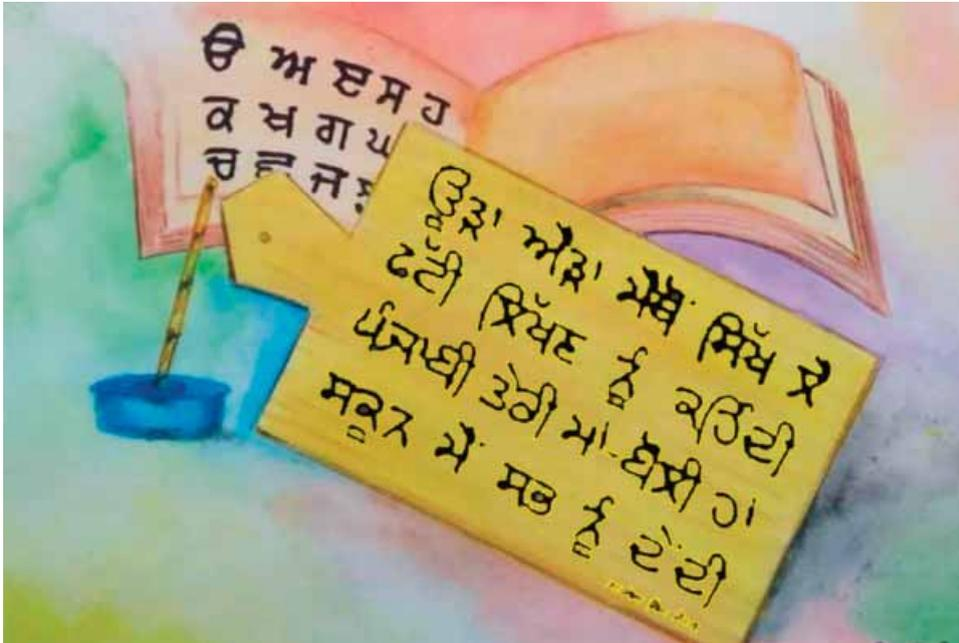 ੳ ਅ ੲ ਸ ਹ
ਕ ਖ ਗ ਘ
ਚ ਛ ਜ
ਊੜਾ ਐੜਾ ਮੈਥੋਂ ਸਿੱਖ ਲੈ
ਫੱਟੀ ਲਿਖਣ ਨੂੰ ਕਹਿੰਦੀ
ਪੰਜਾਬੀ ਤੇਰੀ ਮਾਂ-ਬੋਲੀ ਹਾਂ
ਸਕੂਨ ਮੈਂ ਸਭ ਨੂੰ ਦੇਂਦੀ